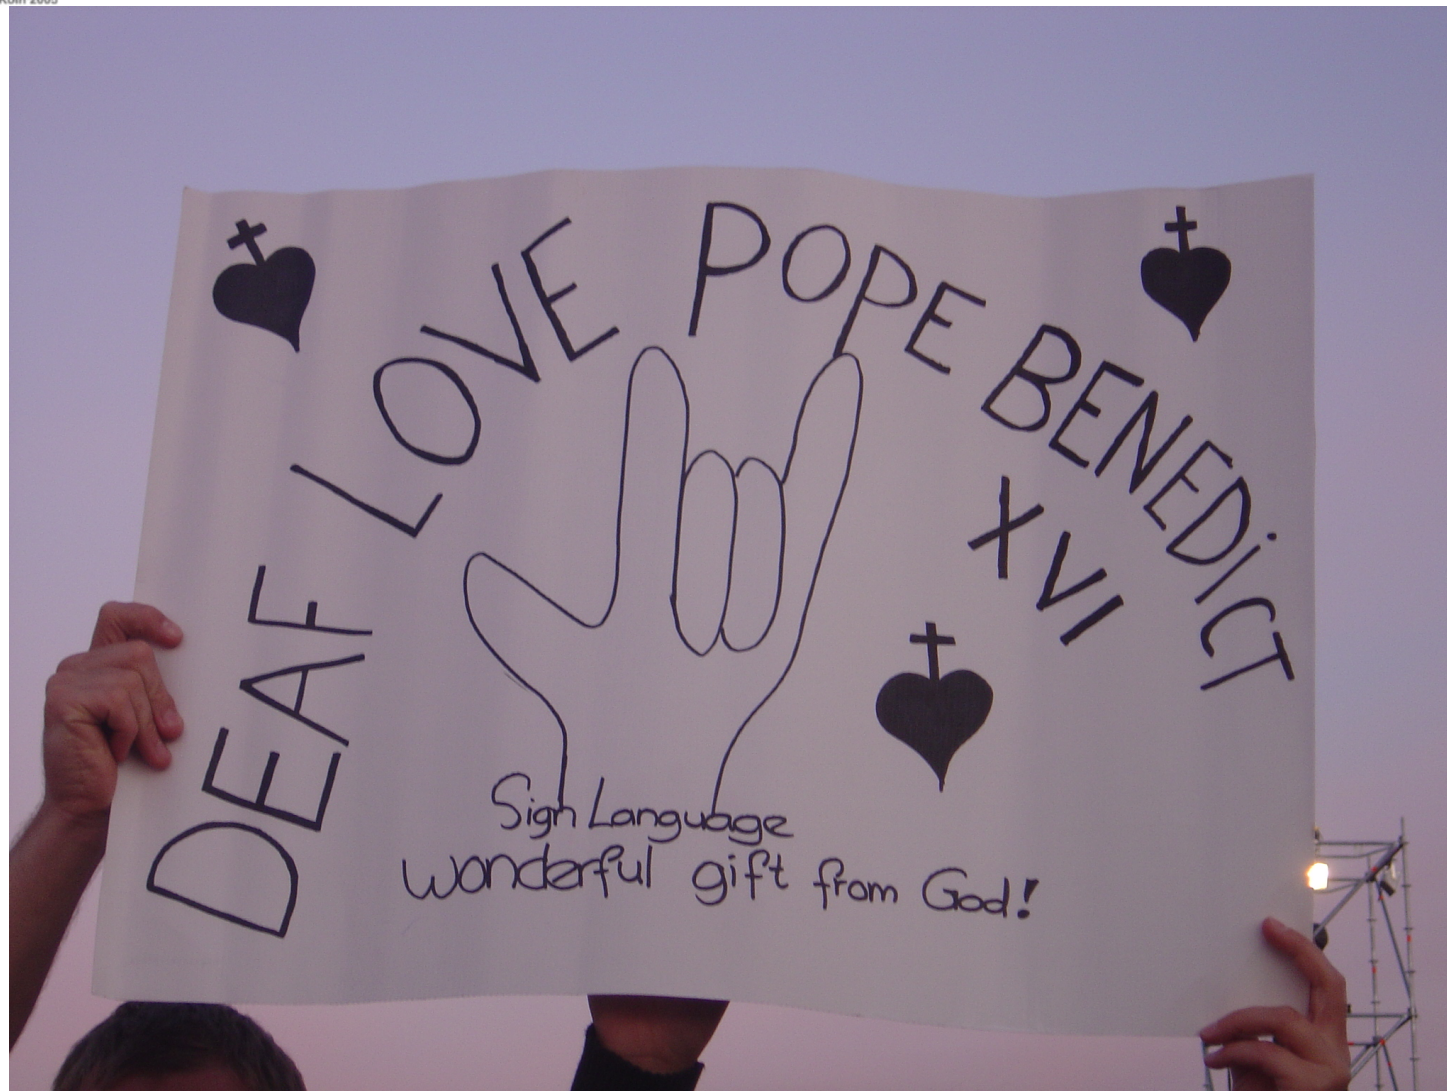 Köln 2005
DEAF LOVE POPE BENEDiCT
XVI
Sign Language
wonderful gift from God!